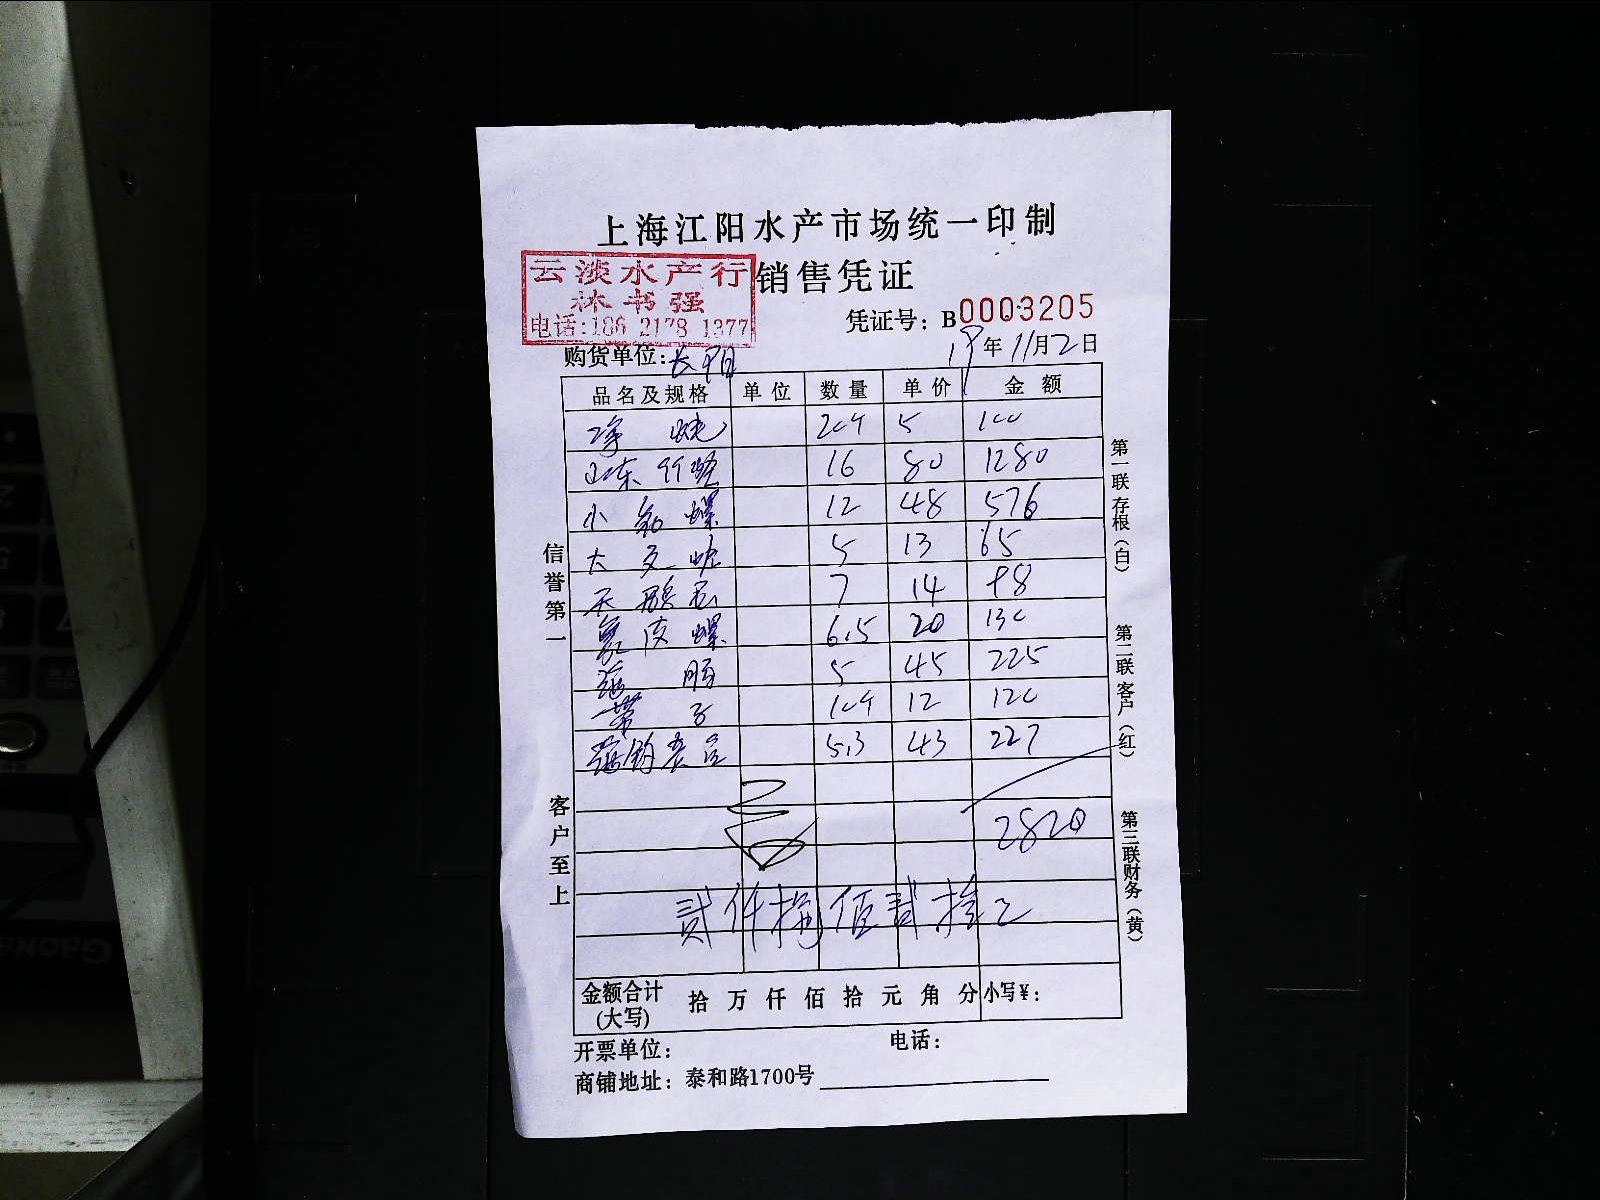 上海江阳水产市场统一印制
云淡水产行
林书强
电话:186 2178 1377
销售凭证
凭证号: B0003205
购货单位:长阳
19年11月2日
品名及规格 单位 数量 单价 金额
20斤 5 100
山东 16 80 1280
小 螺 12 48 576
大 5 13 65
天鹅 7 14 98
螺 6.5 20 130
5 45 225
带子 10斤 12 120
5.3 43 227
2820
贰仟捌佰贰拾元
金额合计(大写) 拾 万 仟 佰 拾 元 角 分 小写¥:
开票单位: 电话:
商铺地址: 泰和路1700号
信誉第一 客户至上
第一联存根(白) 第二联客户(红) 第三联财务(黄)